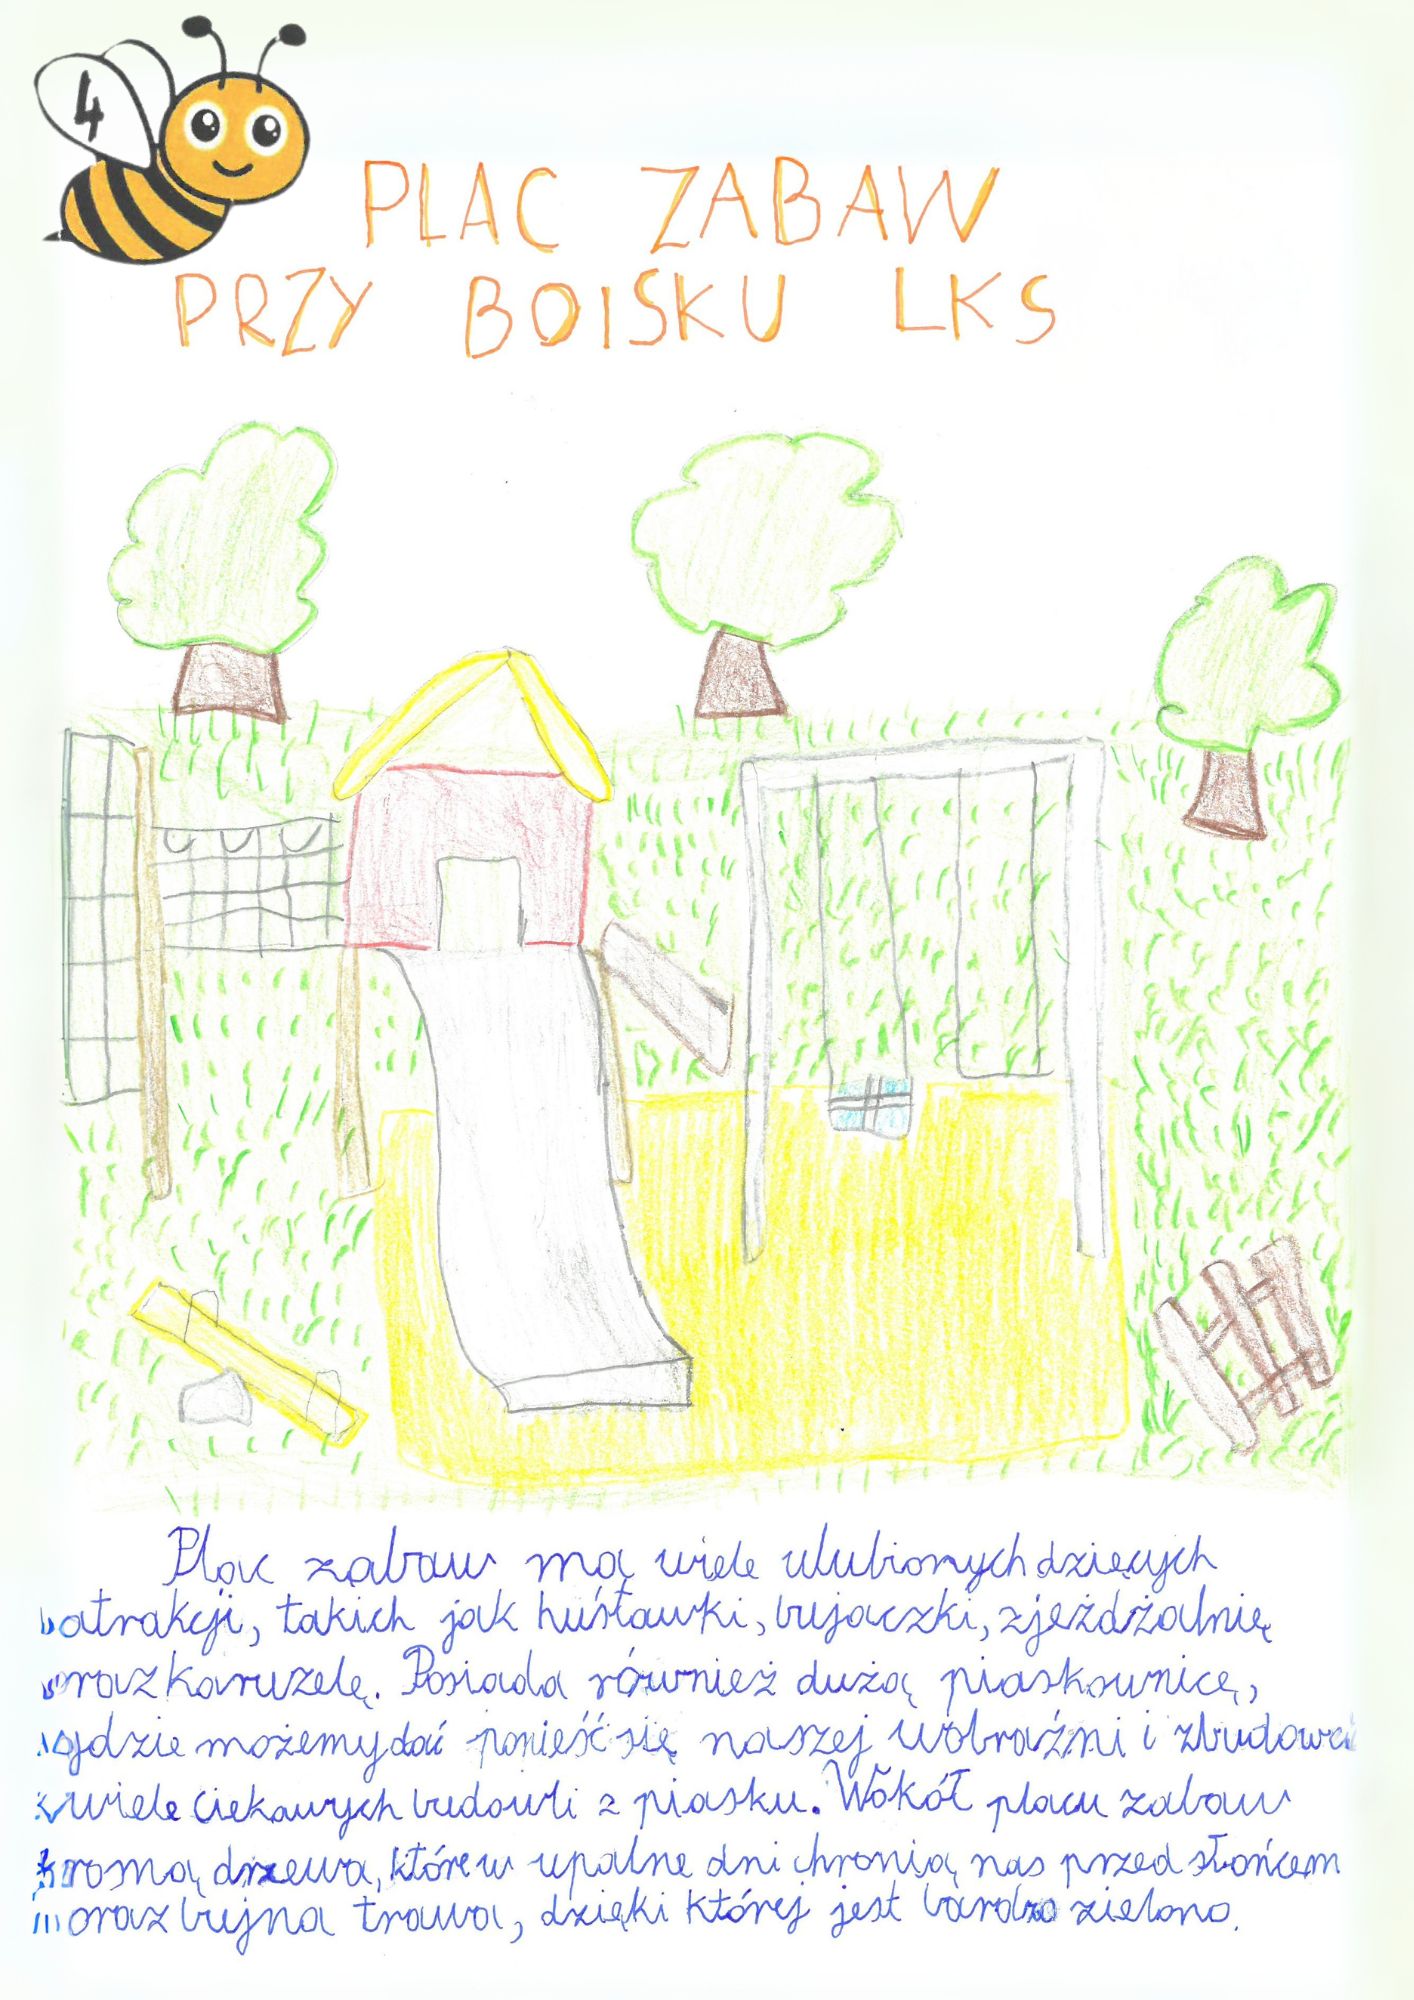 4
PLAC ZABAW
PRZY BOISKU LKS
Plac zabaw ma wiele ulubionych dziecięcych
atrakcji, takich jak huśtawki, bujaczki, zjeżdżalnię
oraz karuzelę. Posiada również dużą piaskownicę,
gdzie możemy dać ponieść się naszej wobraźni i zbudować
wiele ciekawych budowli z piasku. Wokół placu zabaw
rosną drzewa, które w upalne dni chronią nas przed słońcem
oraz bujna trawa, dzięki której jest bardzo zielono.